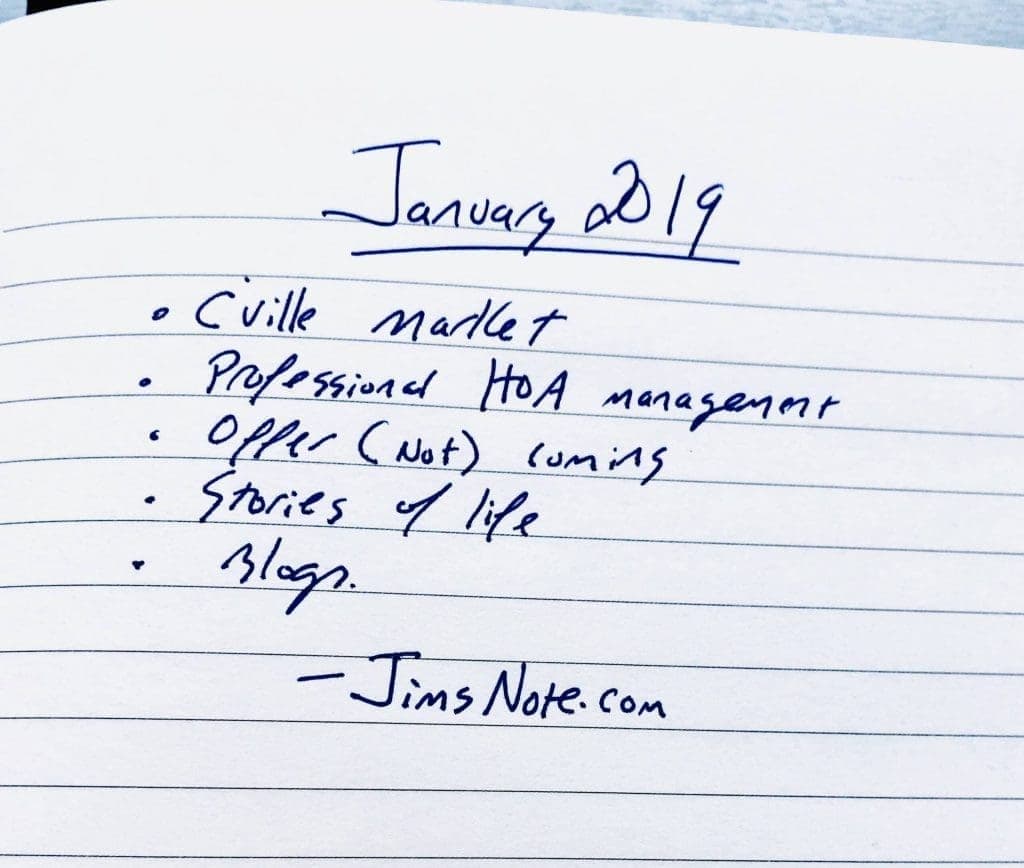 January 2019
• C'ville market
• Professional HOA management
• Offer (Not) coming
• Stories of life
• Blogs.
- JimsNote.com